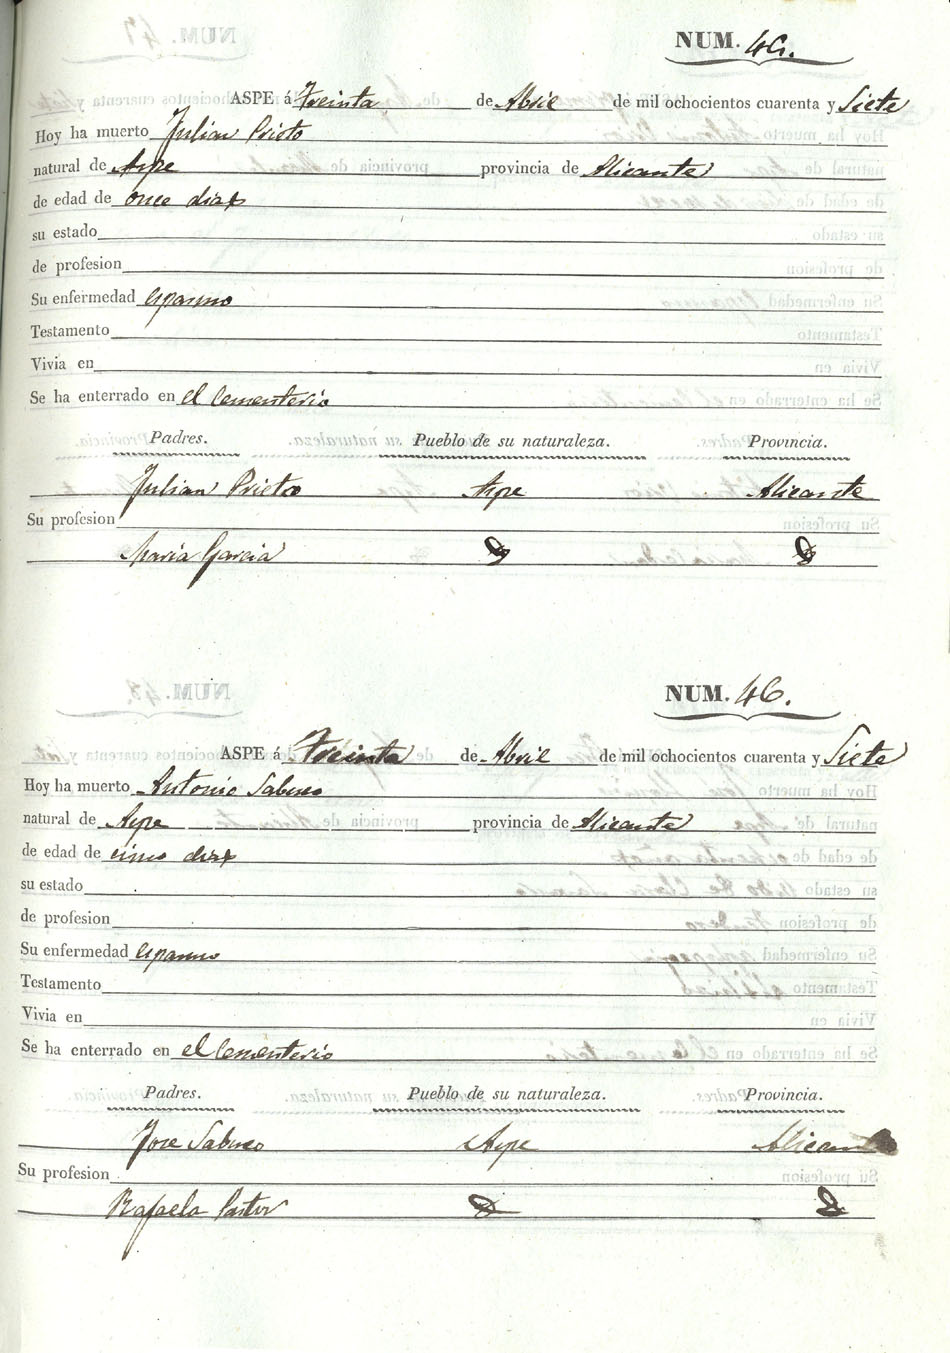 NUM. 45.
ASPE á Treinta de Abril de mil ochocientos cuarenta y Siete
Hoy ha muerto Julian Prieto
natural de Aspe provincia de Alicante
de edad de once dias
su estado
de profesion
Su enfermedad espasmo
Testamento
Vivia en
Se ha enterrado en el Cementerio
Padres. Pueblo de su naturaleza. Provincia.
Julian Prieto Aspe Alicante
Su profesion
Maria Garcia
NUM. 46.
ASPE á Treinta de Abril de mil ochocientos cuarenta y Siete
Hoy ha muerto Antonio
natural de Aspe provincia de Alicante
de edad de cinco dias
su estado
de profesion
Su enfermedad espasmo
Testamento
Vivia en
Se ha enterrado en el Cementerio
Padres. Pueblo de su naturaleza. Provincia.
Jose Aspe Alicante
Su profesion
Rafaela Pastor